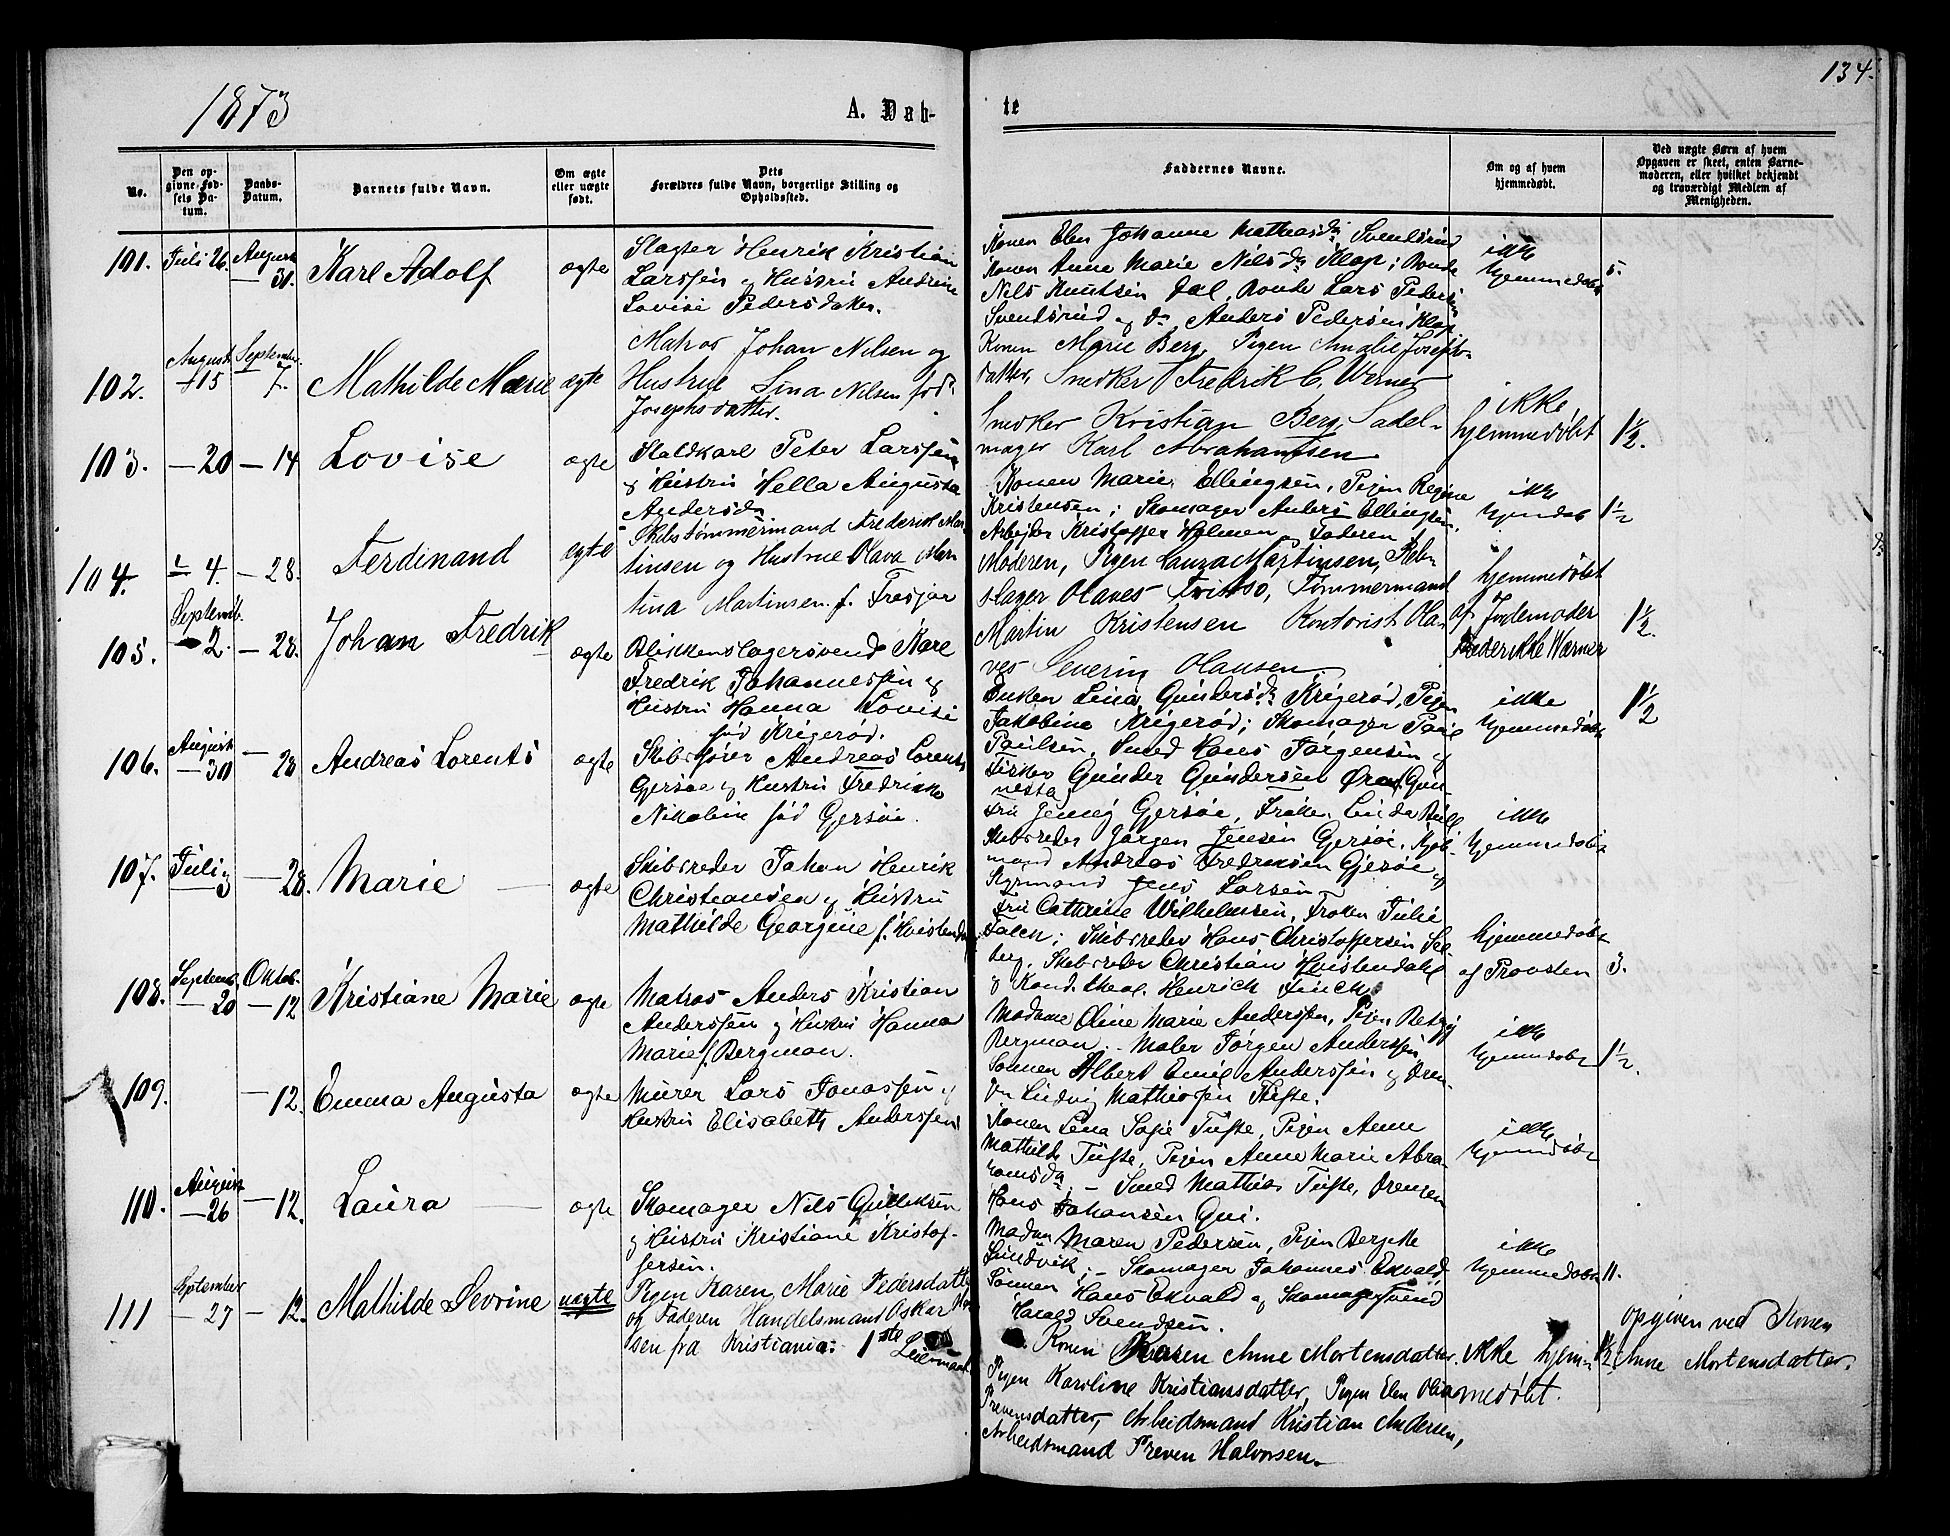 1873
A. Døb-
te
134.
No.
Den op-
givne Fød-
sels Da-
tum.
Daabs-
Datum.
Barnets fulde Navn.
Om ægte
eller uægte
født.
Dets
Forældres fulde Navn, borgerlige Stilling og
Opholdssted.
Faddernes Navne.
Om og af hvem
hjemmedøbt.
Ved uægte Børn af hvem
Opgaven er skeet, enten Barne-
moderen, eller hvilket bekjendt
og troværdigt Medlem af
Menigheden.
101. Juli 26. August 31. Karl Adolf ægte
Slagter Henrik Kristian
Larssen og Hustru Andrine
Lovise Pedersdatter.
Konen Elen Johanne Mathiasdr Svendsrud
Konen Anne Marie Nilsdr Klop; Bonde
Nils Knutsen Dal, Bonde Lars Pedersen
Svendsrud og do Anders Pedersen Klop
ikke
hjemmedøbt
5.
102. August 15 September 7. Mathilde Marie ægte
Matros Johan Nilsen og
Hustrue Lina Nilsen fød
Josephsdatter.
Konen Marie Berg, Pigen Amalie Josephs-
datter, Snedker Fredrik C. Werner
Snedker Kristian Berg, Sadel-
mager Karl Abrahamsen
ikke
hjemmedøbt
1½.
103. — 20 — 14 Lovise ægte
Staldkarl Peter Larssen
og Hustru Hella Augusta
Andersdr
Konen Marie Ellingsen, Pigen Regine
Kristensen; Skomager Anders Ellingsen,
Arbejder Kristoffer Holmen og Faderen
ikke
hjemdøb
1½
104. — 4. — 28. Ferdinand ægte
Skibstømmermand Frederik Mar-
tinsen og Hustrue Olava Mar-
tina Martinsen f. Tresjør
Moderen, Pigen Laura Martinsen, Reb-
slager Olaves Fritsø, Tømmermand
Martin Kristensen Kontorist Ola-
ves Severin Olausen
hjemmedøbt
af Jordemoder
Frederikke Wærner
1½.
105. Septemb. 2. — 28. Johan Fredrik ægte
Blikkenslagersvend Karl
Fredrik Johannessen og
Hustru Hanna Lovise
fød Krigerød.
Enken Lina Gundersdr Krigerød, Pigen
Jakobine Krigerød; Skomager Paul
Paulsen, Smed Hans Jørgensen og
Fisker Gunder Gundersen
ikke
hjemmedøbt
1½
106. August — 30 — 28 Andreas Lorents ægte
Skibsfører Andreas Lorents
Gjersøe og Hustru Fredrikke
Nikoline fød Gjersøe.
Fru Jenny Gjersøe, Frøken Linda Bull
Skibsreder Jørgen Jensen Gjersøe, Kjøb-
mand Andreas Fredriksen Gjersøe, og
Styrmand Jens Larsen
ikke
hjemmedøbt
107. Juli 3 — 28. Marie — ægte
Skibsreder Johan Henrik
Christiansen og Hustru
Mathilde Georgine f. Hvistendahl
Fru Cathrine Wilhelmsen, Frøken Julie
Falch; Skibsreder Hans Christoffersen See-
berg, Skibsreder Christian Hvistendahl
og Kand. theol. Henrich Finch
hjemmedøbt
af Provsten
3.
108. Septemb. — 20 Oktob. — 12 Kristiane Marie ægte
Matros Anders Kristian
Anderssen og Hustru Hanna
Marie f. Bergman.
Madame Oline Marie Anderssen, Pigen Betzy
Bergman. — Maler Jørgen Anderssen,
Sønnen Albert Emil Anderssen og Dren-
gen Ludvig Mathiassen Tufte.
ikke
hjemmedøbt
1½.
109. — 12. Emma Augusta ægte
Murer Lars Jonassen og
Hustru Elisabeth Anderssen
Konen Lena Sofie Tufte, Pigen Anne
Mathilde Tufte, Pigen Anne Marie Abra-
hamsdr; — Smed Mathias Tufte, Drengen
Hans Johansen Gui.
ikke
hjemmedøbt
110. August — 26 — 12. Laura — ægte
Skomager Nils Gulliksen
og Hustru Kristiane Kristof-
fersen.
Madam Maren Pedersen, Pigen Bergitte
Lundvik; — Skomager Johannes Ekvald,
Sønnen Hans Ekvald og Skomagersvend
Harald Svendsen.
ikke
hjemmedøbt
11.
111 September — 27 — 12. Mathilde Sevrine uægte
Pigen Karen Marie Pedersdatter
og Faderen Handelsmand Oskar
sen fra Kristiania: 1ste
Leiermaal
Konen Karen Anne Mortensdatter
Pigen Karoline Kristiansdatter, Pigen Elen Olia
Prevensdatter, Arbeidsmand Kristian Andersen,
Arbeidsmand Preven Halvorsen.
Ikke hjem-
medøbt.
1½
opgiven ved Konen
Anne Mortensdatter.